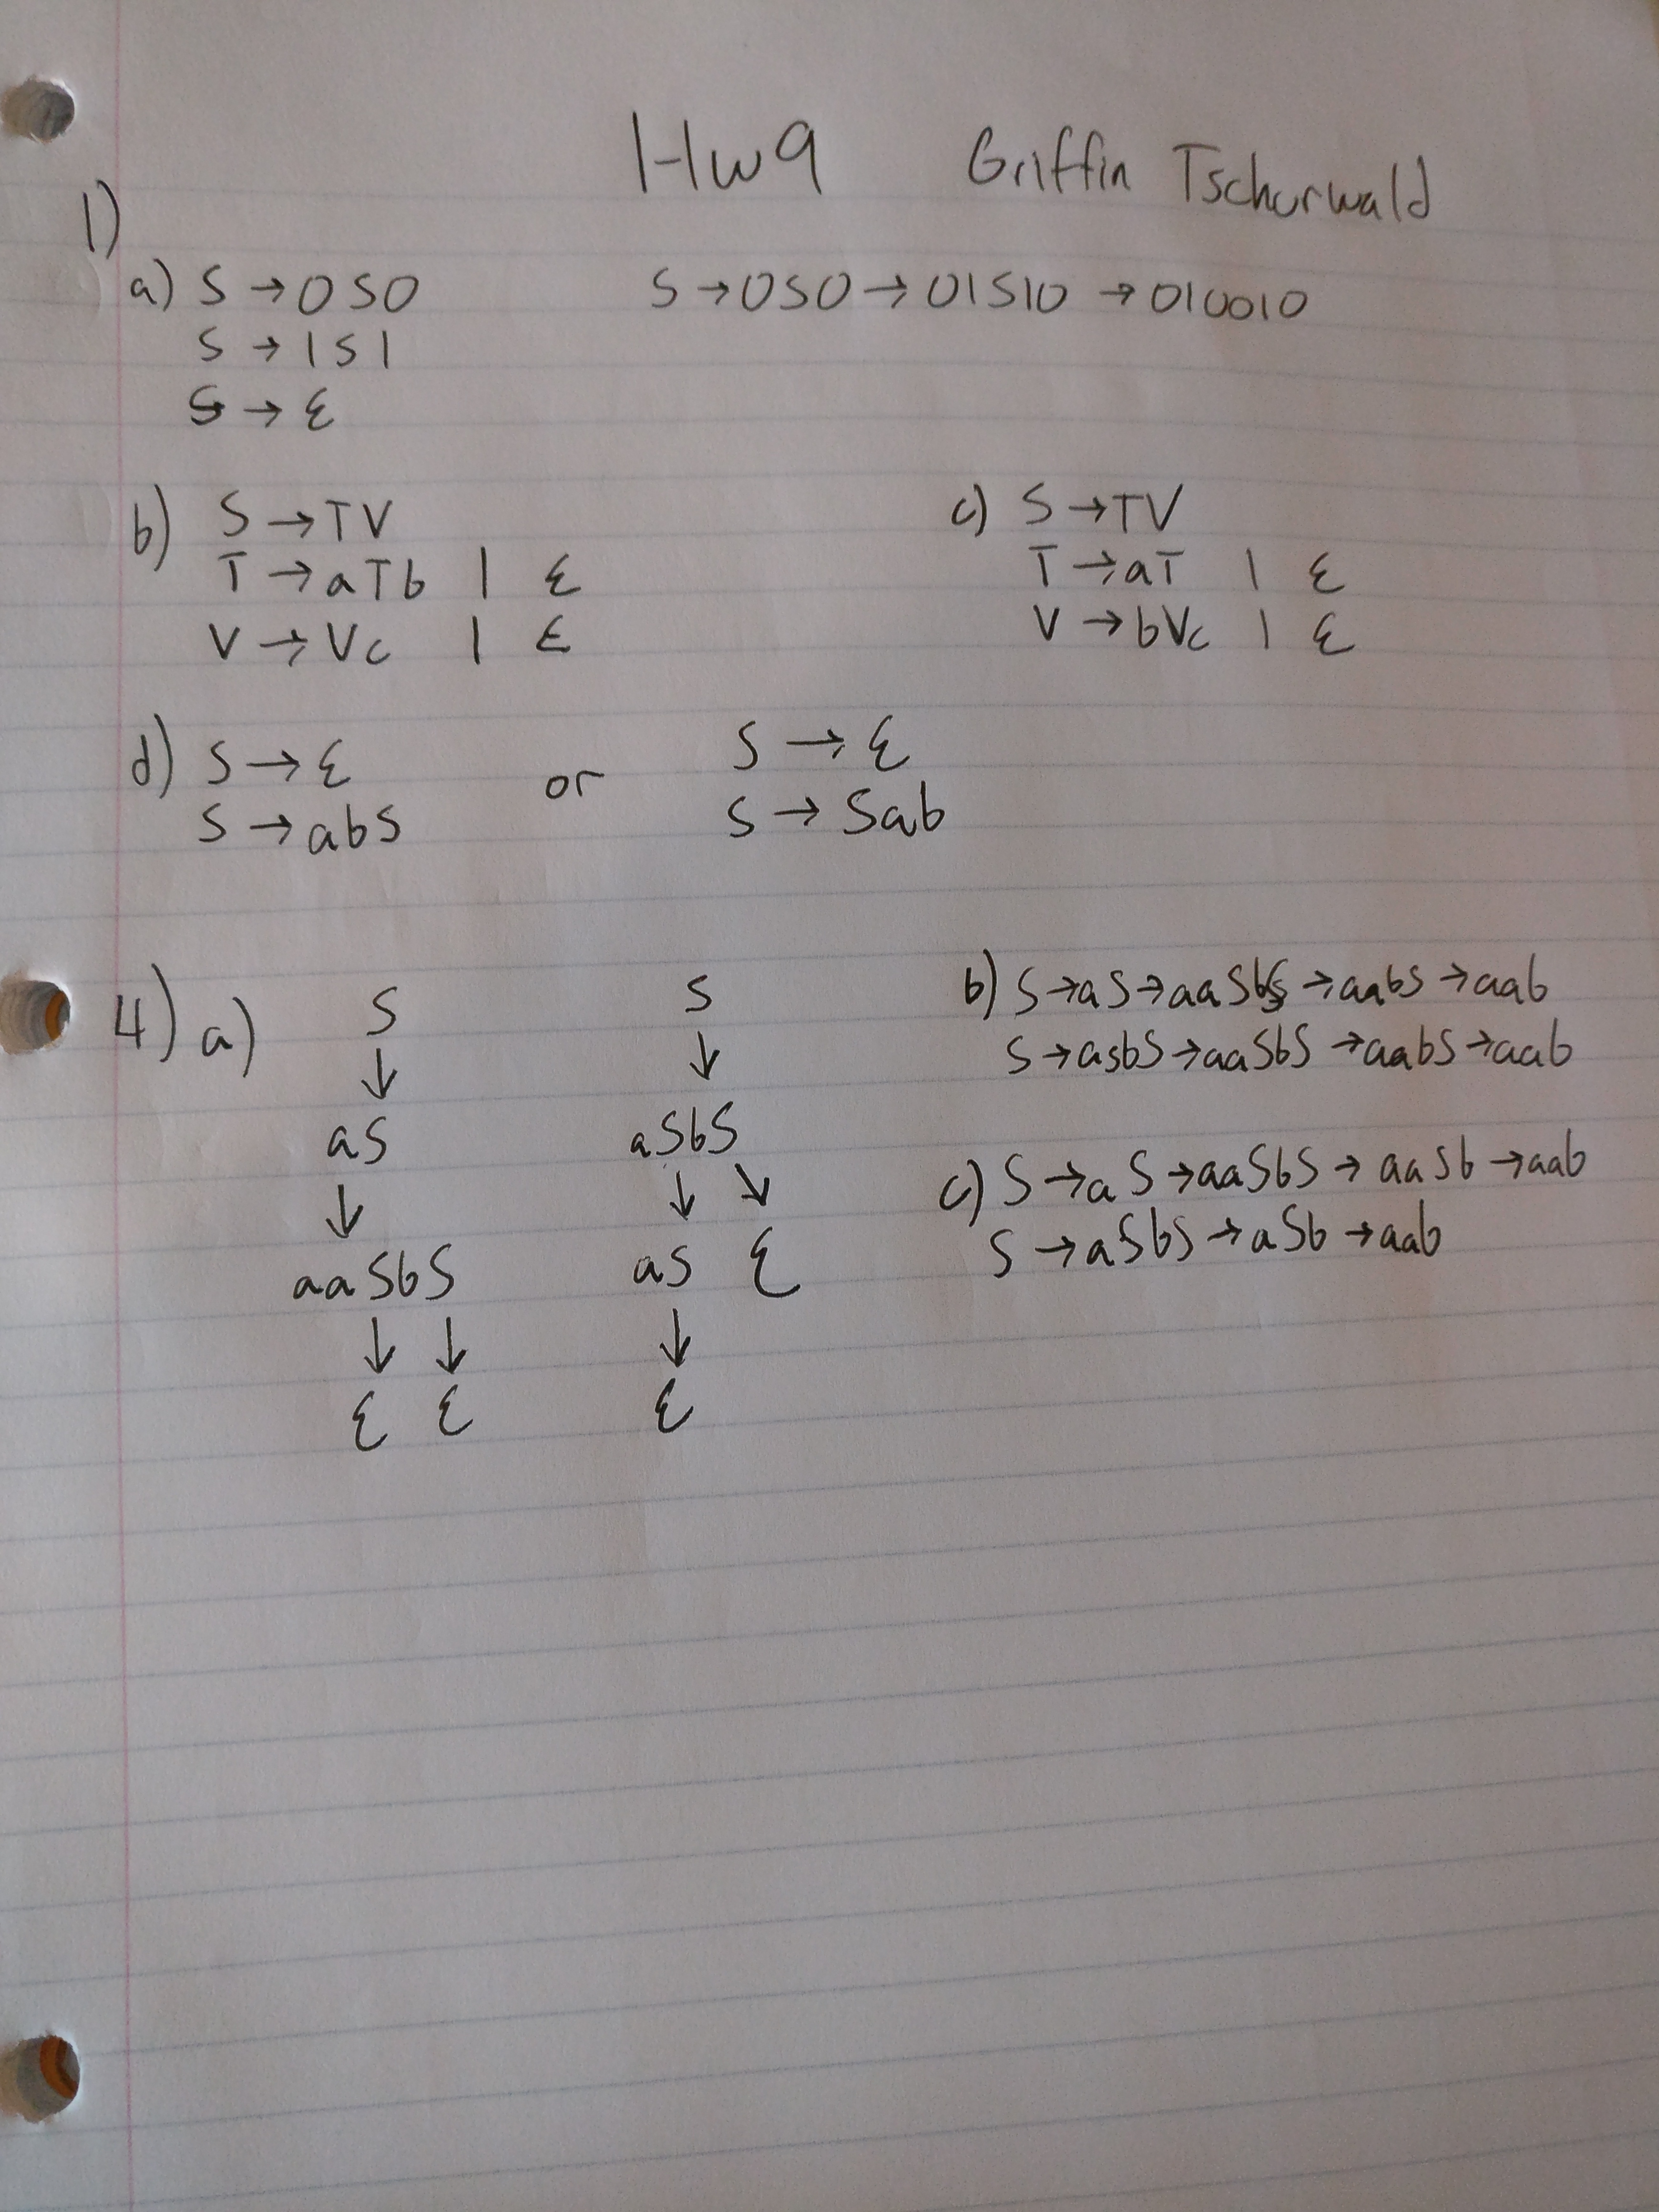 Hw9 Griffin Tschurwald
1)
a) S → 0S0 S → 0S0 → 01S10 → 010010
S → 1S1
S → ε
b) S → TV
T → aTb | ε
V → Vc | ε
c) S → TV
T → aT | ε
V → bVc | ε
d) S → ε
S → abS
or
S → ε
S → Sab
4) a)
S
↓
aS
↓
aaSbS
↓ ↓
ε ε
S
↓
aSbS
↓ ↘
aS ε
↓
ε
b) S → aS → aaSbS → aabS → aab
S → aSbS → aaSbS → aabS → aab
c) S → aS → aaSbS → aaSb → aab
S → aSbS → aSb → aab